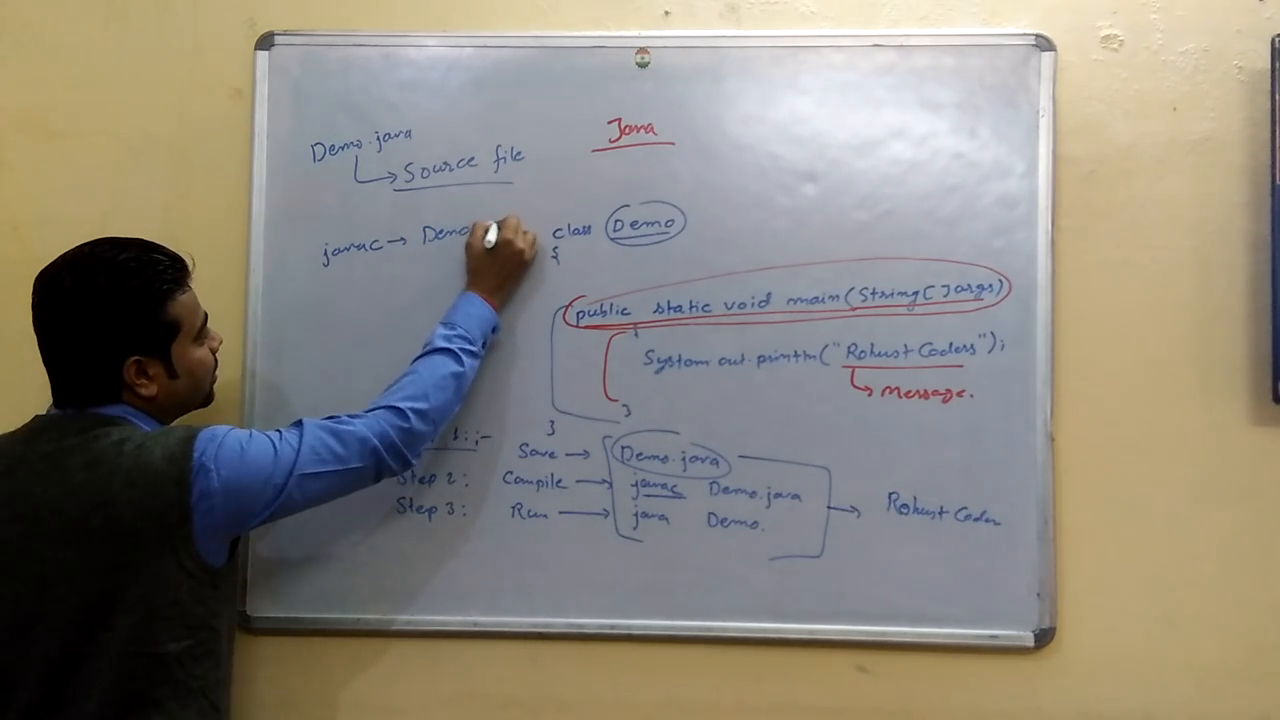 Java
Demo.java
Source file
javac → Demo
class Demo
{
public static void main(String[]args)
{
System.out.println("Robust Coders");
Message.
}
}
1:;-
Save → Demo.java
Step 2: Compile → javac Demo.java
Step 3: Run → java Demo.
→ Robust Coder